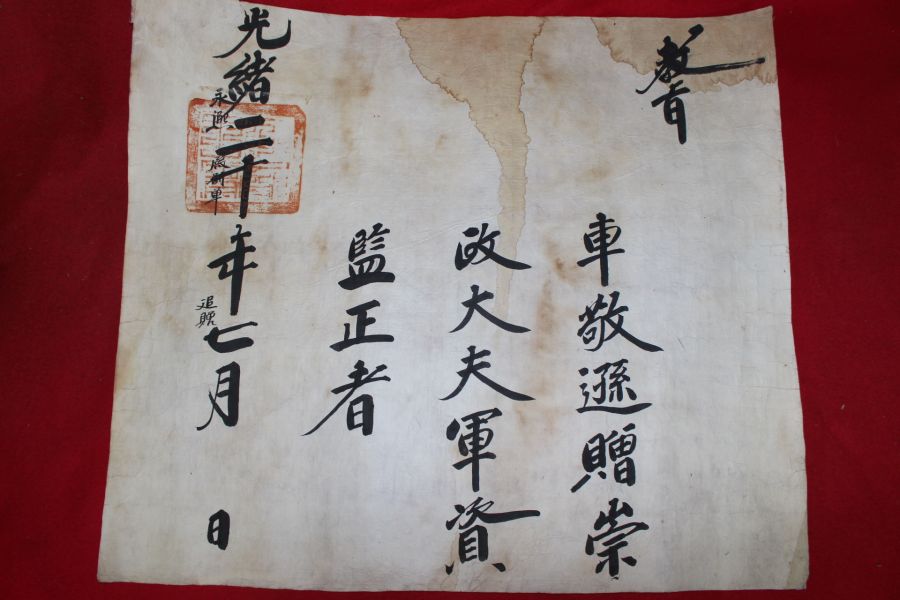 敎旨
車敬遜贈崇
政大夫軍資
監正者
光緒二十年七月 日
永熙
追贈